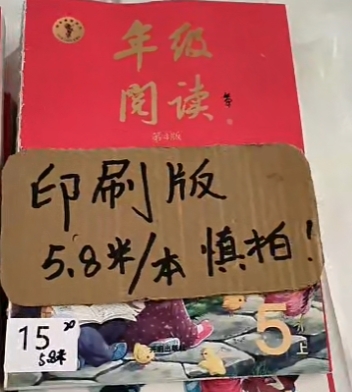 年级
阅读
第4版
印刷版
5.8米/本慎拍!
15
5.8米
5
上